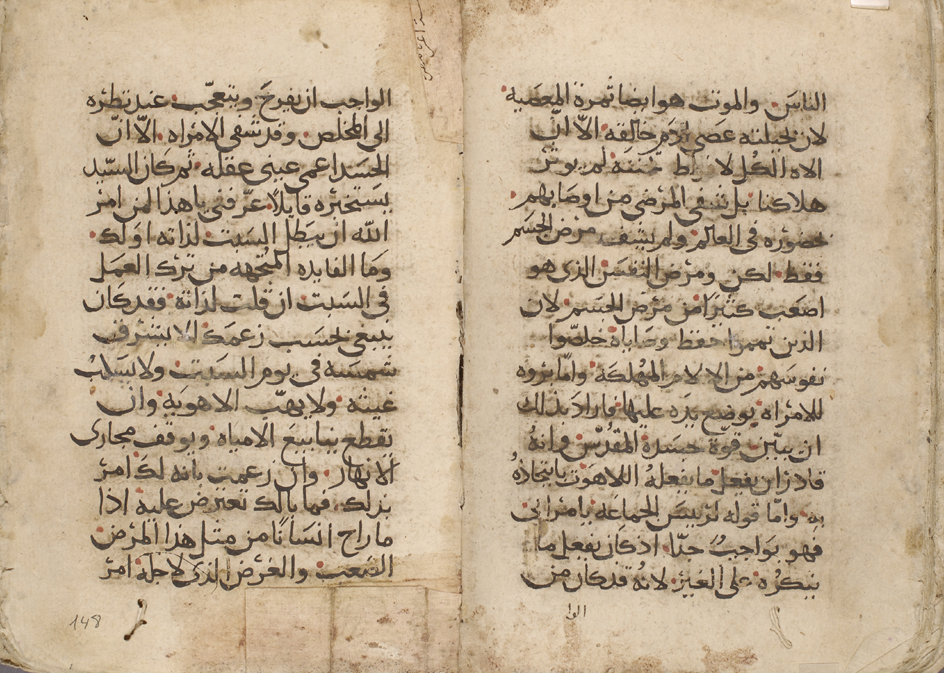 الناس. والموت هو ايضا ثمرة المعصية
لان بجبلته عصى ادم خالقه. الا ان
الاه الكل لافراط تحننه لم يوثر
هلاكنا. بل شفى المرضى من اوصابهم
بحضوره في العالم. ولم يشف مرض الجسم
فقط. لكن ومرض النفس الذي هو
اصعب كثيرا من مرض الجسم. لان
الذين تمموا حفظ وصاياه خلصوا
نفوسهم من الالام المهلكة. واما بروه
للامراه بوضع يده عليها. فاراد بذلك
ان يبين قوة جسده المقدس. وانه
قادر ان يفعل ما يفعله اللاهوت باتحاده
به. واما قوله لرييس الجماعه يامرائي
فهو بواجب جدا. اذ كان يفعل ما
ينكره على الغير. لانه قد كان من
الوا
الواجب ان يفرح ويتعجب. عند نظره
الى المخلص. وقد شفى الامراه. الا ان
الحسد اعمى عيني عقله. ثم كان السيد
يستخبره قايلا. عرفني ياهذا لمن امر
الله ان يبطل السبت. لذاته او لك.
وما الفايده المتجهه من ترك العمل
في السبت. ان قلت لذاته. فقد كان
ينبغي بحسب زعمك الا يشرق
شمسه في يوم السبت. ولا يسكب
غيثه. ولا يهب الاهويه. وان
يقطع ينابيع الامياه. ويوقف مجاري
الانهار. وان زعمت بانه لك امر
بذلك. فما بالك تعترض عليه اذا
ما راح انسانا من مثل هذا المرض
الصعب. والغرض الذي لاجله امر
148